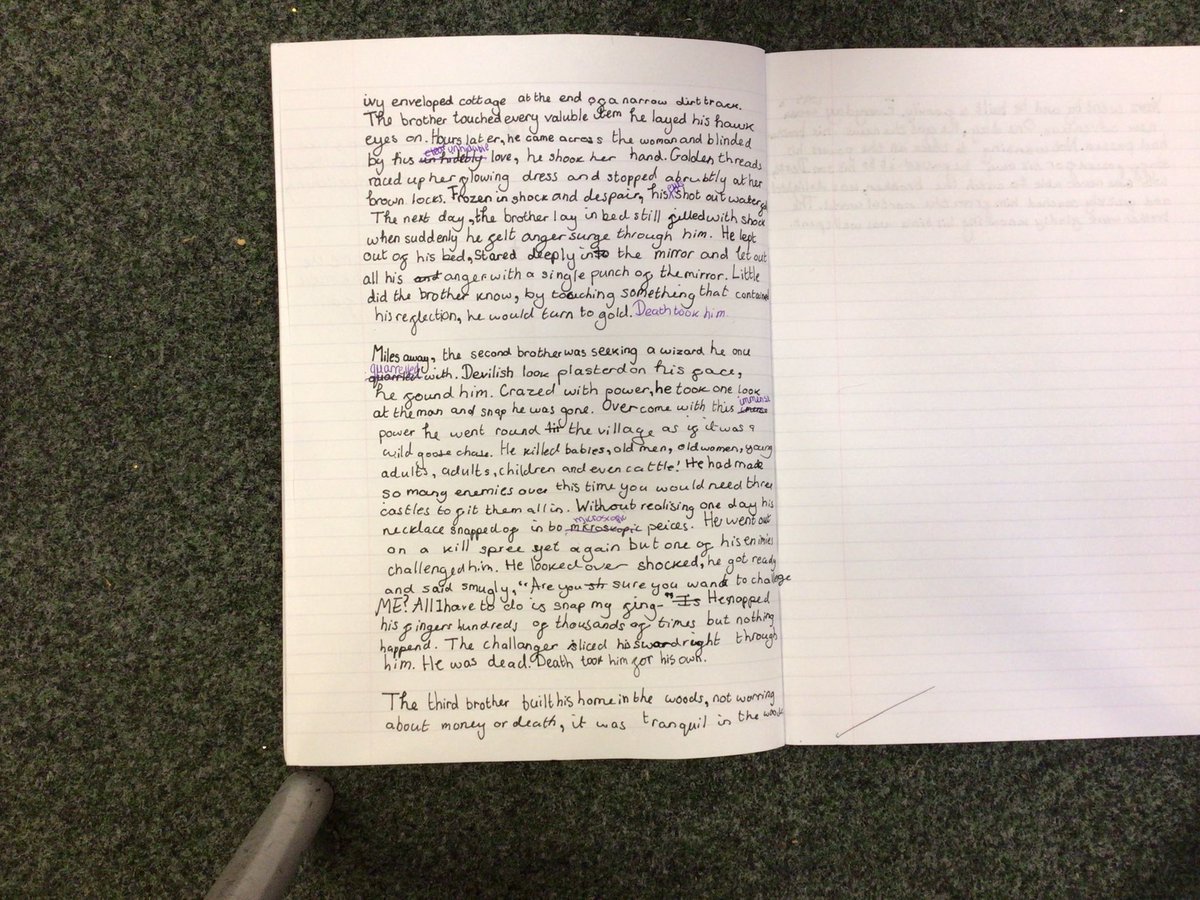 ivy enveloped cottage at the end of a narrow dirt track.
The brother touched every valuble item he layed his hawk
eyes on. Hours later, he came across the woman and blinded
by his love, he shook her hand. Golden threads
raced up her flowing dress and stopped abrubtly at her
brown locks. Frozen in shock and despair, his eyes shot out water
The next day, the brother lay in bed still filled with shock
when suddenly he felt anger surge through him. He lept
out of his bed, stared deeply into the mirror and let out
all his and anger with a single punch of the mirror. Little
did the brother know, by touching something that contained
his reflection, he would turn to gold. Death took him.
Miles away, the second brother was seeking a wizard he once
quarrelled
quarried with. Devilish look plasterd on his face,
he found him. Crazed with power, he took one look
at the man and snap he was gone. Overcome with this immense
power he went round the village as if it was a
wild goose chase. He killed babies, old men, old women, young
adults, adults, children and even cattle! He had made
so many enemies over this time you would need three
castles to fit them all in. Without realising one day his
microscopic
necklace snapped of in to microskopic peices. He went out
on a kill spree yet again but one of his enimies
challenged him. He looked over shocked, he got ready
and said smugly, "Are you sh sure you want to challenge
ME? All I have to do is snap my fing-" Is He snapped
his fingers hundreds of thousands of times but nothing
happend. The challanger sliced his sword right through
him. He was dead. Death took him for his own.
The third brother built his home in the woods, not worring
about money or death, it was tranquil in the woods